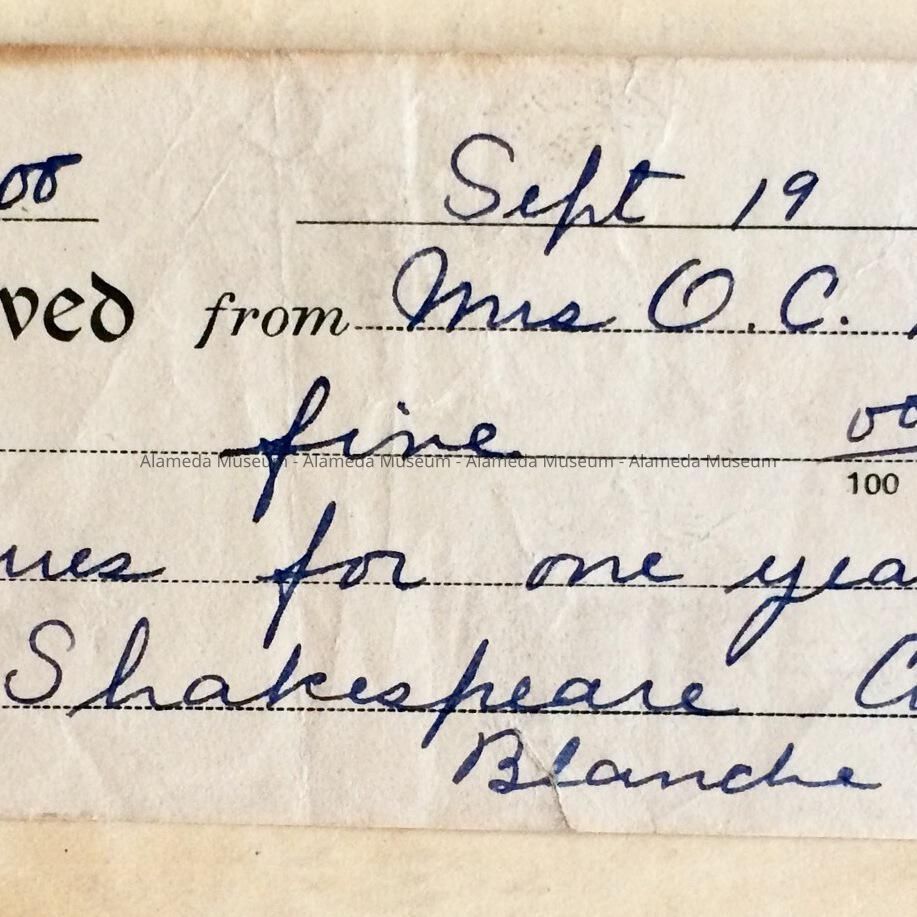 00 Sept 19
ved from Mrs O. C.
five 00
Alameda Museum - Alameda Museum - Alameda Museum - Alameda Museum
100
ues for one yea
Shakespeare C
Blanche